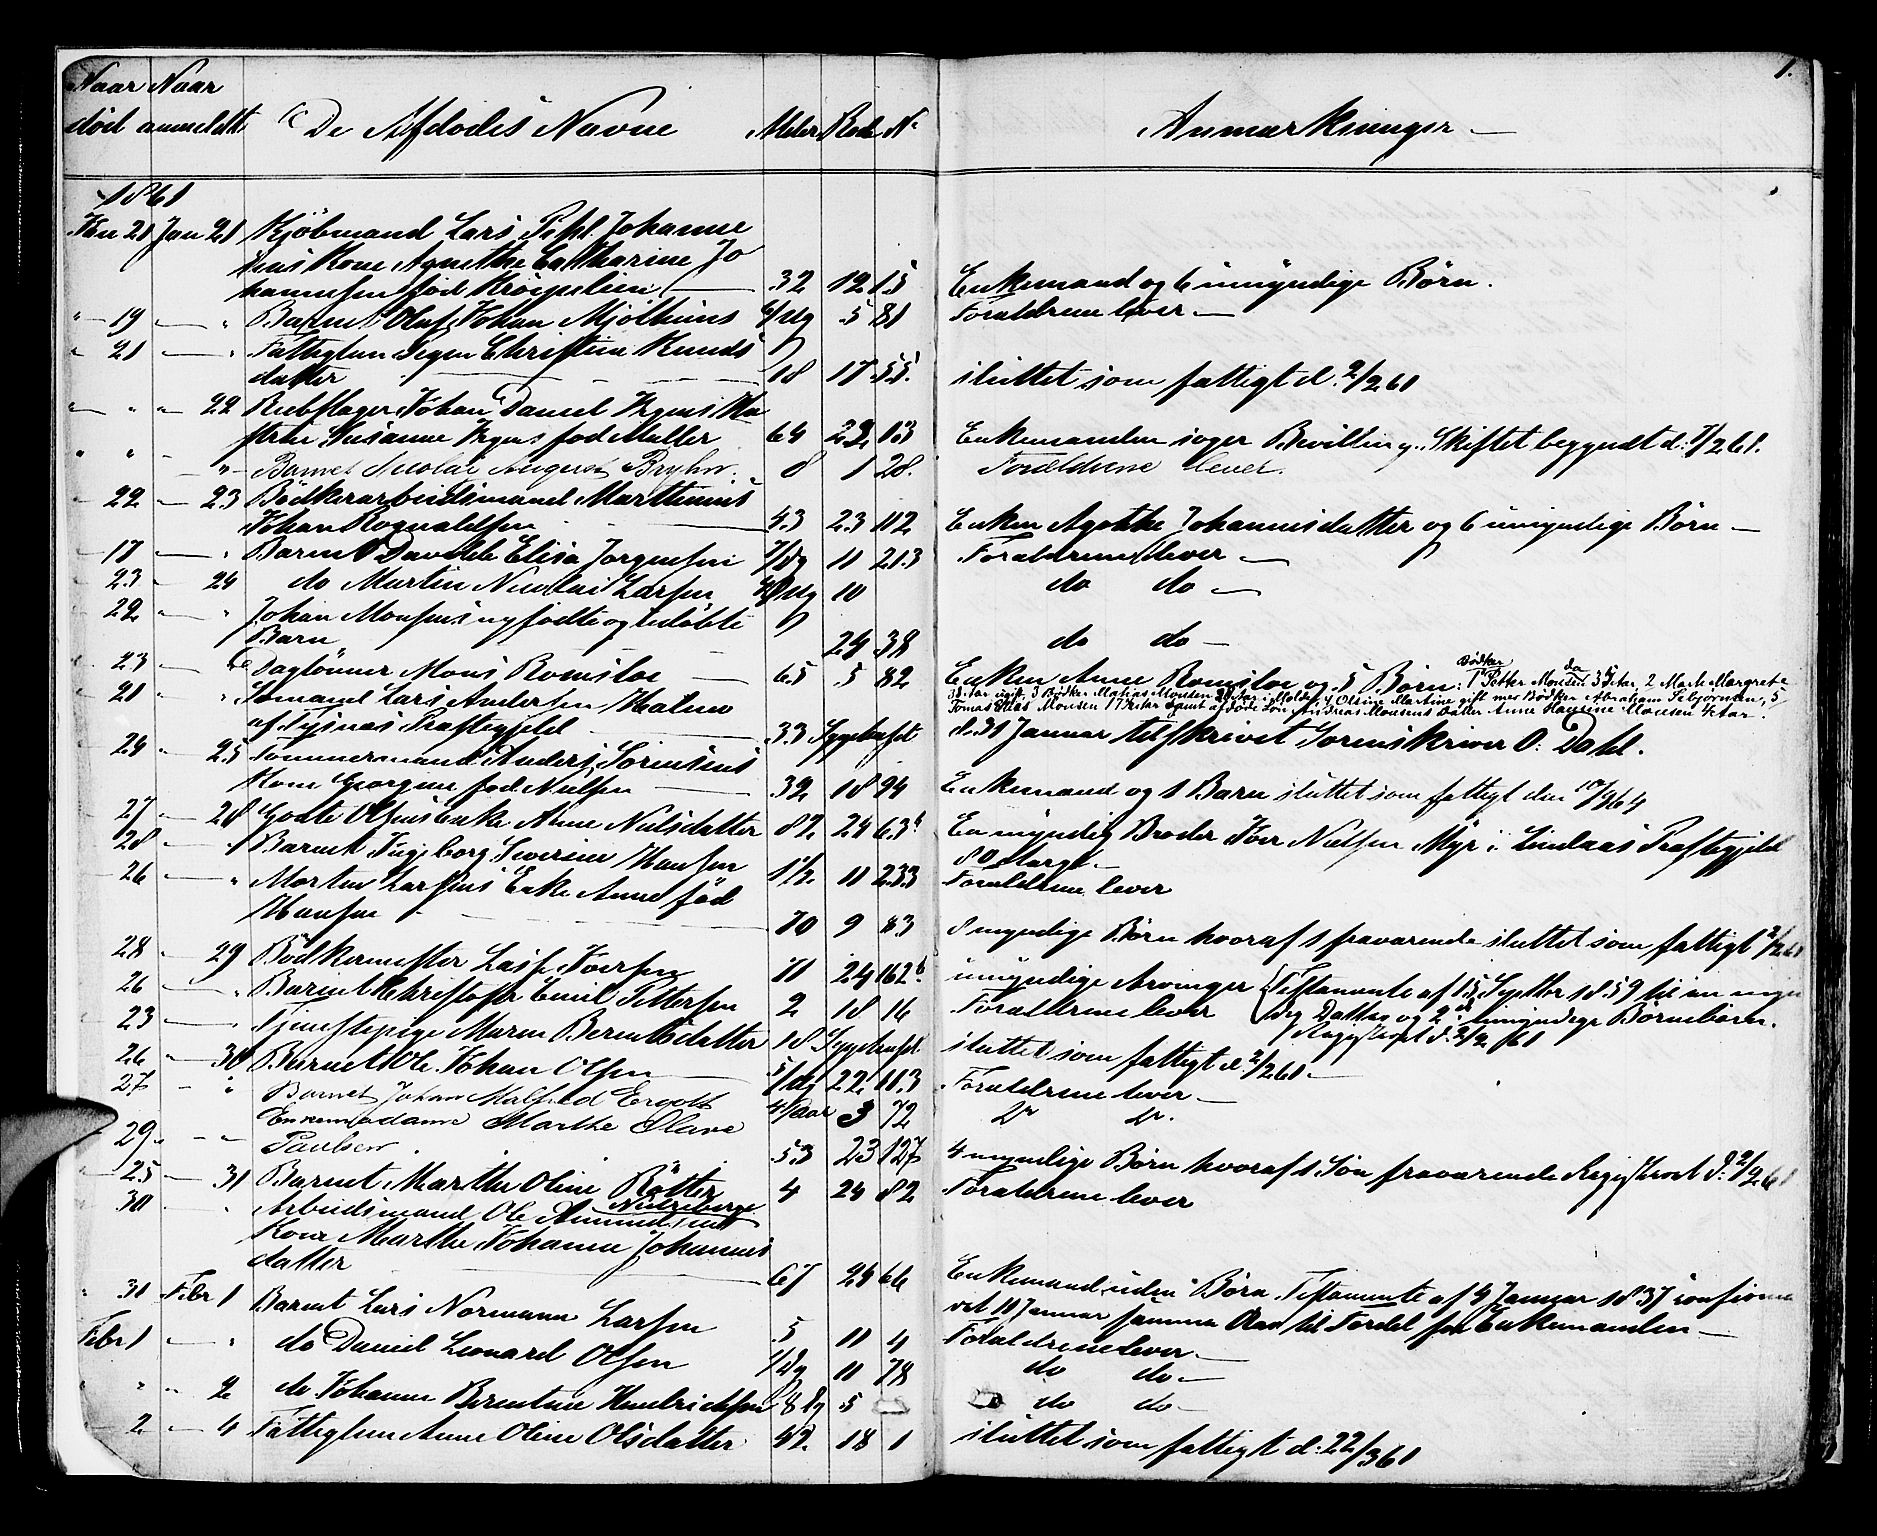 1.
Naar Naar
död anmeldt De Afdödes Navne Alder Rode N.
Anmærkninger
1861
Jan 21 Jan 21 Kjöbmand Lars Johanne
sens Kone Agnethe Catharine Jo
hannesen föd 32 12 15 Enkemand og 6 umyndige Börn.
" 19 " Barnet Oluf Johan Mjölhuus 5 81 Forældrene lever
" 21 " Fattiglem Pigen Christine Knuds
datter 18 17 55. sluttet som fattigt d. 2/2 61
" " 22 Rebslager Johan Daniel Krgens Hu
strue Susanne föd Müller 64 23 13 Enkemanden söger Bevilling. Skiftet begyndt d: 7/2 61.
" " " Barnet Nicolai August Bryhn. 8 1 28. Forældrene lever.
22 23 Bödkerarbeidsmand Marthinus
Johan Rognaldsen 43 23 112 Enken Agathe Johannisdatter og 6 umyndige Börn
17 " Barnet Davikke Elisa Jörgensen 7/dg 11 213 Forældrene lever
23 24 do Martin Nicolai Larsen 10 do do
22 " Johan Monsens nyfödte og udöbte
Barn 24 38 do do
23 Daglönner Mons Romsloe 65 5 82 Enken Anne Romsloe og 5 Börn: 1 Petter Monsen 35 Aar, 2 Marte Margrete
Bödker do
38 Aar ugift, 3 Bödker Matias Monsen 30 Aar i Molde, 4 Olsine Martine gift med Bödker Abraham Pebjörnsen, 5
Tomas Elias Monsen 17 Aar samt afdöde Sön Andreas Monsens Datter Anne Hansine Monsen 4 Aar.
21 " Sömand Lars Andersen Malmo
af Tysnæs Præstegjeld 33 Sygehuset d. 31 Januar tilskrivet Sorenskriver O: Dahl.
24 25 Tömmermand Anders Sörensens
Kone Georgine föd Nielsen 32 18 94 Enkemand og 1 Barn sluttet som fattigt den 10/9 64
27 28 Godte Olsens Enke Anne Nielsdatter 82 24 63 En myndig Broder Iver Nielsen Myr i Lindaas Præstegjeld
80 Aarge.
28 " Barnet Ingeborg Severine Hansen 1 1/2 11 233 Forældrene lever
26 " Morten Larsens Enke Anne föd
Hansen 70 9 83 8 myndige Börn hvoraf 1 fraværende sluttet som fattigt 2/2 61
28 29 Bödkermester Lasse Iversen 71 24 162 umyndige Arvinger Testamente af 15 Septbr 1859 til en myn
26 " Barnet Christofer Emil Pettersen 2 18 16 Forældrene lever dig Datter og 2 umyndige Börnebörn.
Registreret d. 2/2 61
23 " Tjenestepige Maren Berentsdatter 18 Sygehuset sluttet som fattigt d. 2/2 61
26 30 Barnet Ole Johan Olsen 5/dg 22 113 Forældrene lever
27 " Barnet Johan Malfred Ergott 4/Aar 3 72
29 " Enkemadame Marthe Olave
Paulsen 53 23 127 4 myndige Börn hvoraf 1 Sön fraværende Registreret d. 2/2 61
25 31 Barnet Marthe Oline Rötter 4 24 82 Forældrene lever
30 " Arbeidsmand Ole Amundsens
Kone Marthe Johanne Johannis
datter 67 24 66 Enkemand uden Börn Testamente af 4 Januar 1837 confirme
ret 11 Januar samme Aar til Fordel for Enkemanden
" 31 Febr 1 Barnet Lars Normann Larsen 5 11 4 Forældrene lever
Febr 1 " do Daniel Leonard Olsen 1/dg 11 78 do do
" 2 do Johanne Berentine Hendrichsen 8 dg 5 do do
2 4 Fattiglem Anne Oline Olsdatter 42 18 1 sluttet som fattigt d: 22/3 61